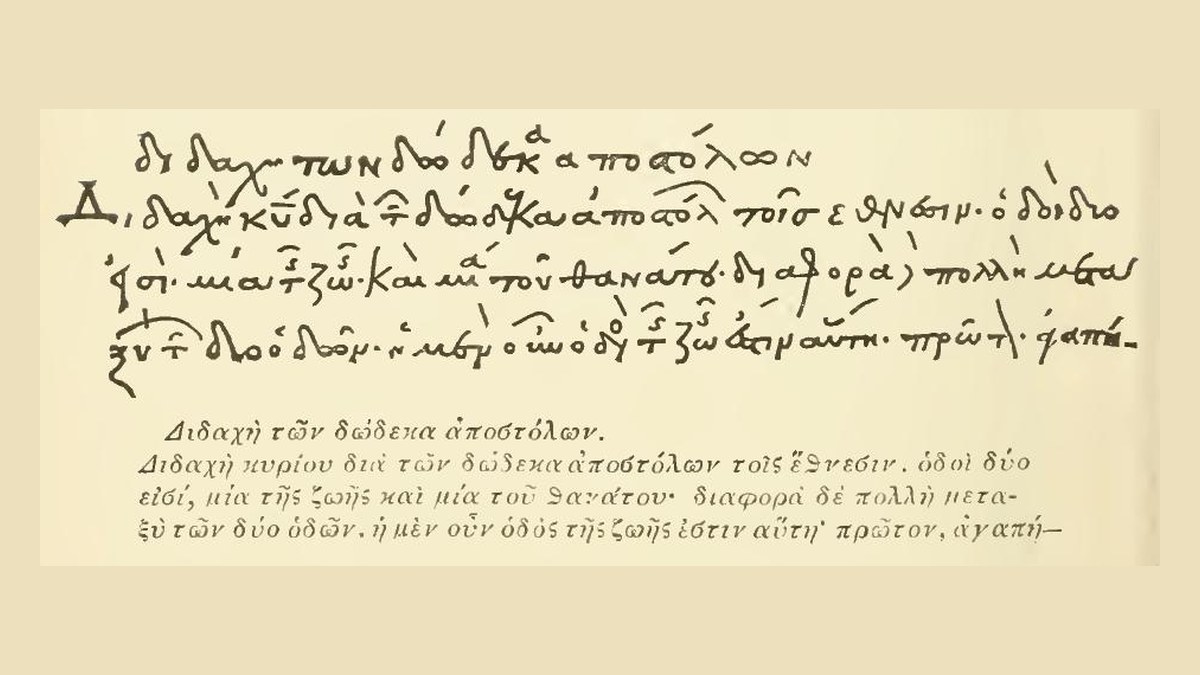 διδαχὴ των δώδεκα αποστόλων
Διδαχὴ κῡ διὰ τ̑ δώδεκα ἀποστόλ τοῖσ ἔθνεσιν· ὁδοὶ δύο
εἰσί· μία τ̑ς ζω̑ς· καὶ μία τοῦ θανάτου· διαφορὰ) πολλὴ μετα
ξὺ τ̑ δύο ὁδῶν· ἡ μὲν οὖν ὁδὸ τ̑ς ζω̑ς ἐστιν αὕτη· πρῶτ· ἀγαπή-
Διδαχὴ τῶν δώδεκα ἀποστόλων.
Διδαχὴ κυρίου διὰ τῶν δώδεκα ἀποστόλων τοῖς ἔθνεσιν. ὁδοὶ δύο
εἰσί, μία τῆς ζωῆς καὶ μία τοῦ θανάτου· διαφορὰ δὲ πολλὴ μετα-
ξὺ τῶν δύο ὁδῶν. ἡ μὲν οὖν ὁδὸς τῆς ζωῆς ἐστιν αὕτη· πρῶτον, ἀγαπή—